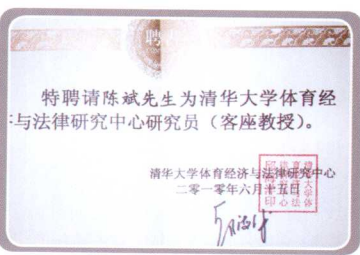 聘
特聘请陈斌先生为清华大学体育经
济与法律研究中心研究员(客座教授)。
清华大学体育经济与法律研究中心
二零一零年六月十五日